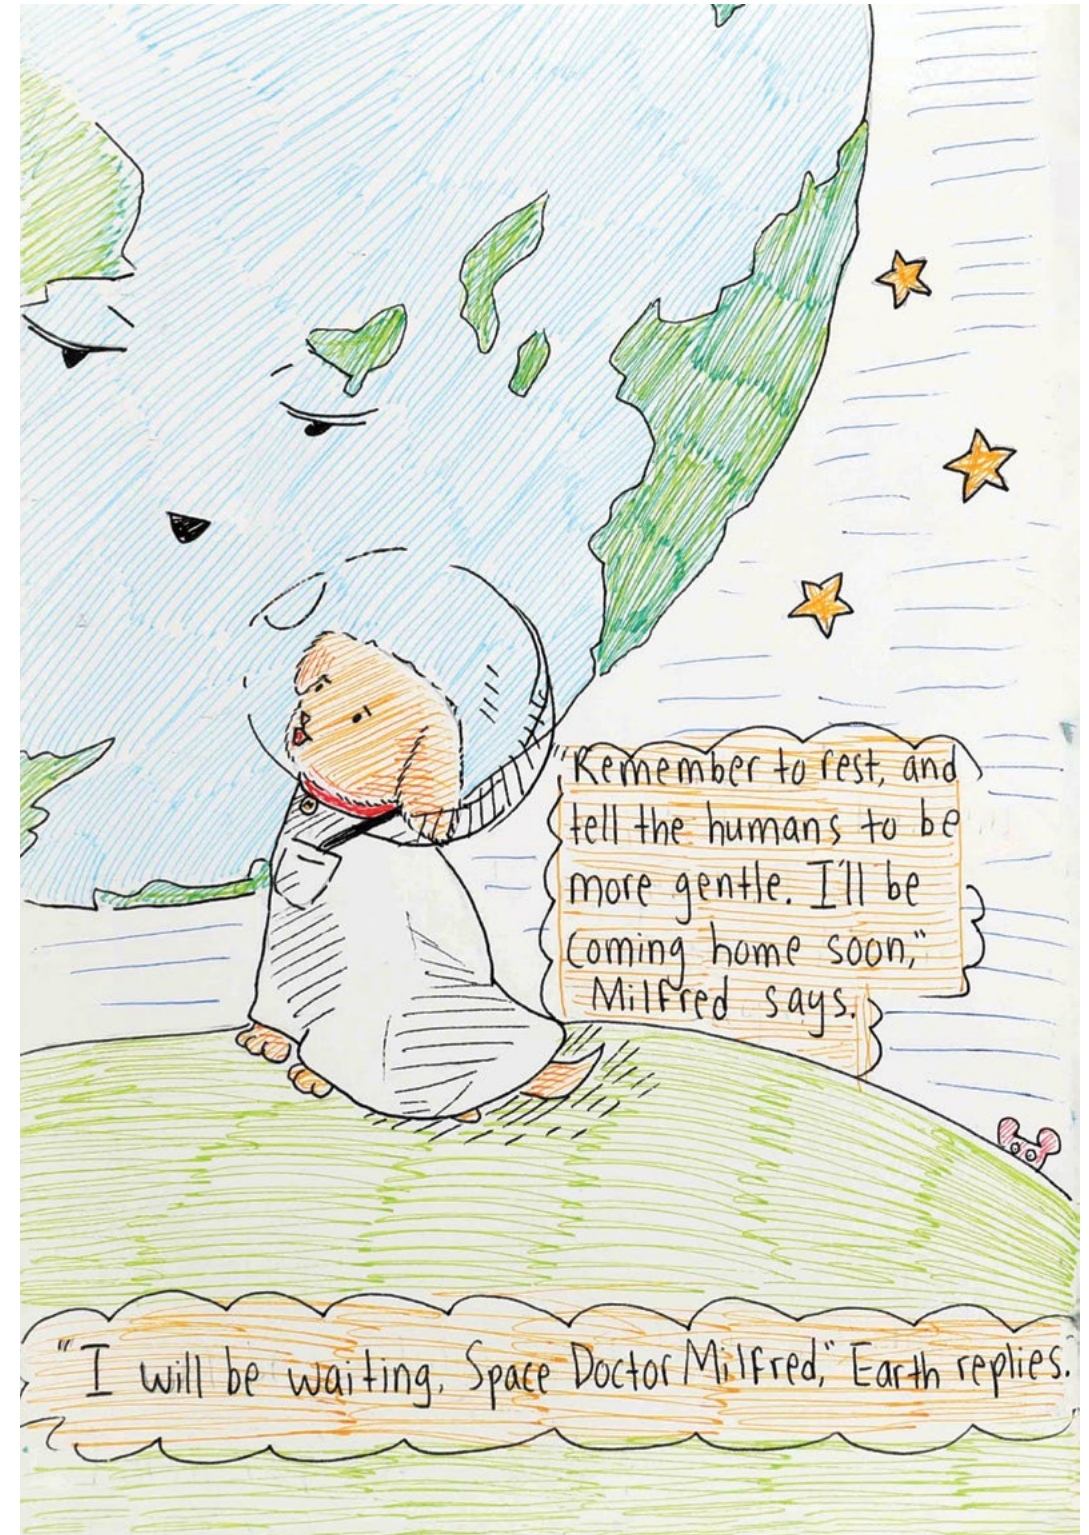 "Remember to rest, and
tell the humans to be
more gentle. I'll be
coming home soon,"
Milfred says.
"I will be waiting, Space Doctor Milfred," Earth replies.